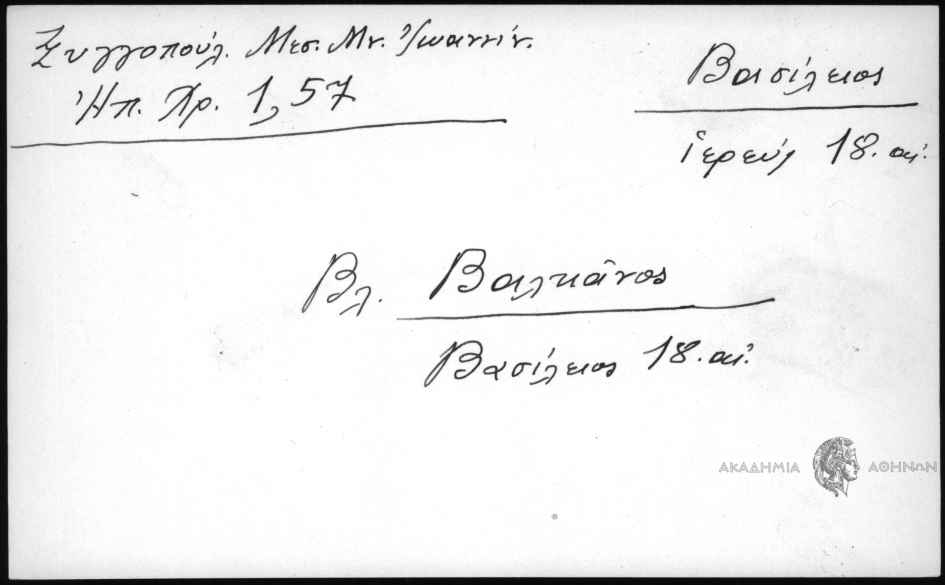 Ξυγγοπούλ. Μεσ. Μν. Ἰωαννίν.
Ἠπ. Χρ. 1, 57
Βασίλειος
ἱερεύς 18. αἰ.
Βλ. Βαλκᾶνος
Βασίλειος 18. αἰ.
ΑΚΑΔΗΜΙΑ ΑΘΗΝΩΝ